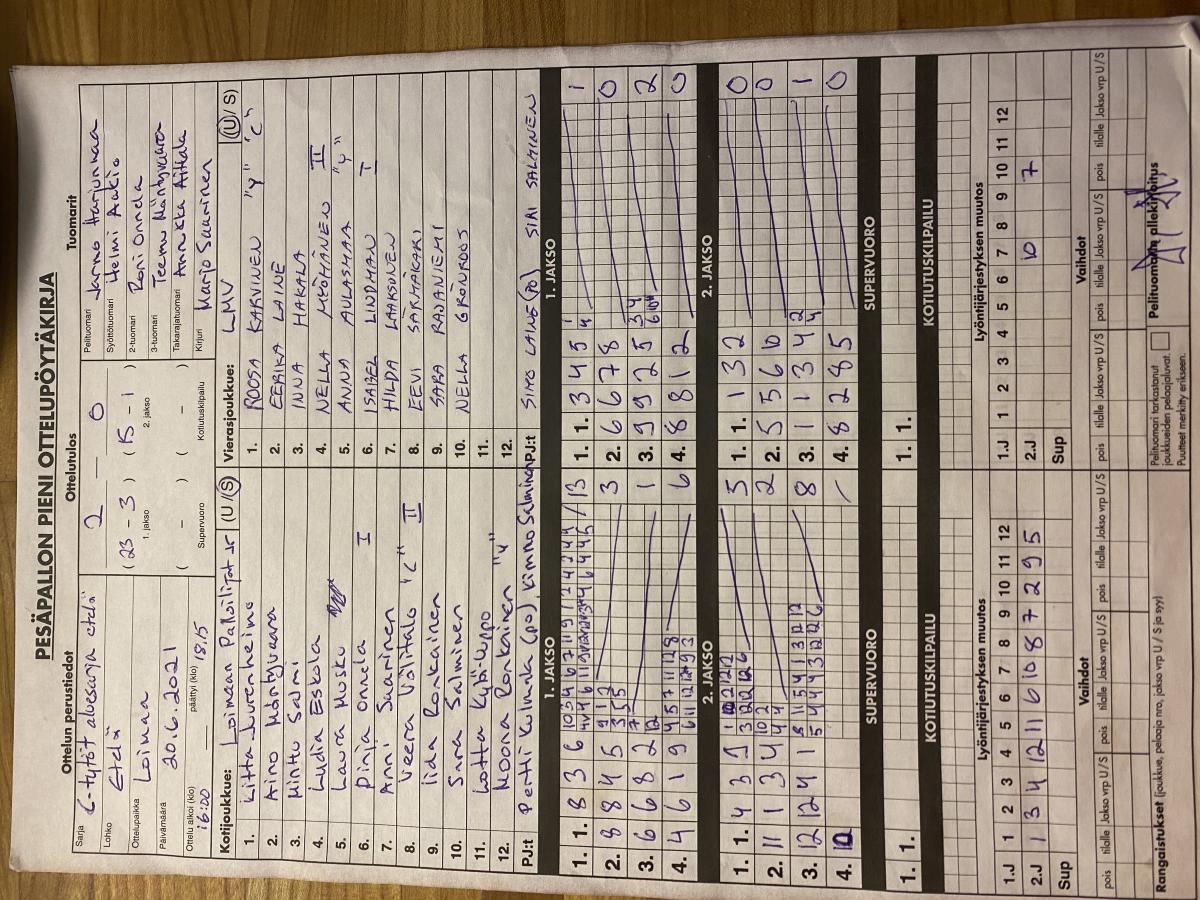 PESÄPALLON PIENI OTTELUPÖYTÄKIRJA
Ottelun perustiedot
Sarja C-tytöt aluesarja etelä
Lohko Etelä
Ottelupaikka Loimaa
Päivämäärä 20.6.2021
Ottelu alkoi (klo) 16:00 päättyi (klo) 18.15
Ottelutulos
2 – 0
(23 - 3) (15 - 1)
1. jakso 2. jakso
( – ) ( – )
Supervuoro Kotiutuskilpailu
Tuomarit
Pelituomari Jarmo Harjunmaa
Syöttötuomari Helmi Aakio
2-tuomari Roni Onnela
3-tuomari Teemu Mäntyvaara
Takarajatuomari Annukka Aittala
Kirjuri Marjo Saarinen
Kotijoukkue: Loimaan Palloilijat (U/S)
1. Iitta Luvenheimo
2. Aino Mäntyvaara
3. Minttu Salmi
4. Lydia Eskola
5. Laura Musku
6. Pinja Onnela I
7. Anni Saarinen
8. Veera Välitalo "C" II
9. Iida Ronkainen
10. Sara Salminen
11. Lotta Kylä-Uuppo
12. Noona Ronkainen "Y"
PJ:t Petti Kulmala (po), Kimmo Salminen
Vierasjoukkue: LMV (U/S)
1. ROOSA KARVINEN "Y" "C"
2. EERIKA LAINE
3. INNA HAKALA
4. NELLA MÖHÄNEN II
5. ANNA AULASMAA "Y"
6. ISABEL LINDMAN I
7. HILDA LAAKSONEN
8. EEVI SÄRMÄKARI
9. SARA RADANIEMI
10. NELLA GRÖNROOS
11.
12.
PJ:t SIMO LAINE (PO) SIRI SALMINEN
1. JAKSO
1. 1. 8 3 6 13
2. 8 8 4 5 3
3. 6 6 8 2 1
4. 4 6 1 9 6
1. JAKSO
1. 1. 3 4 5 1
2. 6 6 7 8 0
3. 9 9 2 5 2
4. 8 8 1 2 0
2. JAKSO
1. 1. 4 3 1 5
2. 11 1 3 4 2
3. 12 12 4 1 8
4.
2. JAKSO
1. 1. 1 3 2 0
2. 5 5 6 6 0
3. 1 1 3 4 1
4. 8 2 8 5 0
SUPERVUORO
1. 1.
SUPERVUORO
1. 1.
KOTIUTUSKILPAILU
KOTIUTUSKILPAILU
Lyöntijärjestyksen muutos
1.J 1 2 3 4 5 6 7 8 9 10 11 12
2.J 1 3 4 12 11 6 10 8 7 2 9 5
Sup
Lyöntijärjestyksen muutos
1.J 1 2 3 4 5 6 7 8 9 10 11 12
2.J 10 7
Sup
Vaihdot
pois tilalle Jakso vrp U/S pois tilalle Jakso vrp U/S pois tilalle Jakso vrp U/S
Vaihdot
pois tilalle Jakso vrp U/S pois tilalle Jakso vrp U/S pois tilalle Jakso vrp U/S
Rangaistukset (joukkue, pelaaja nro, jakso vrp U / S ja syy)
Pelituomari tarkastanut
joukkueiden pelaajaluvat.
Puutteet merkitty erikseen.
Pelituomarin allekirjoitus